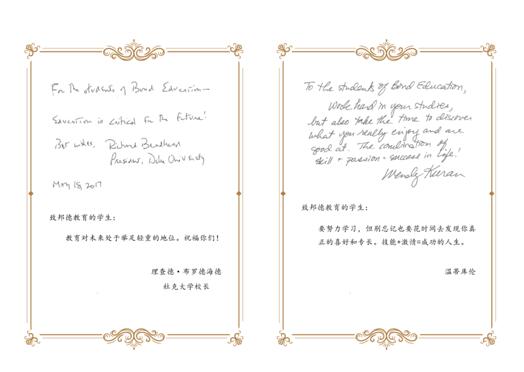 For the students of Bond Education—
Education is critical for the future!
Best wishes, Richard Brodhead
President, Duke University
May 18, 2017
致邦德教育的学生:
教育对未来处于举足轻重的地位。祝福你们!
理查德·布罗德海德
杜克大学校长
To the students of Bond Education,
Work hard in your studies,
but also take the time to discover
what you really enjoy and are
good at. The combination of
skill + passion = success in life!
Wendy Kuran
致邦德教育的学生:
要努力学习,但别忘记也要花时间去发现你真
正的喜好和专长。技能+激情=成功的人生。
温蒂库伦